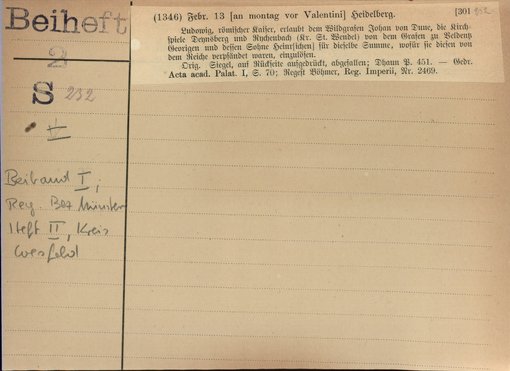 Beiheft
2
S 232
(1346) Febr. 13 [an montag vor Valentini] Heidelberg. [301
Ludowig, römischer Kaiser, erlaubt dem Wildgrafen Johan von Dune, die Kirch-
spiele Deynsberg und Rychenbach (Kr. St. Wendel) von dem Grafen zu Veldentz
Georigen und dessen Sohne Heinr[ichen] für dieselbe Summe, wofür sie diesen von
dem Reiche verpfändet waren, einzulösen.
Orig. Siegel, auf Rückseite aufgedrückt, abgefallen; Dhaun P. 451. — Gedr.
Acta acad. Palat. I, S. 70; Regest Böhmer, Reg. Imperii, Nr. 2469.
Beiband I;
Reg. Bez Münster
Heft II, Kreis
Coesfeld